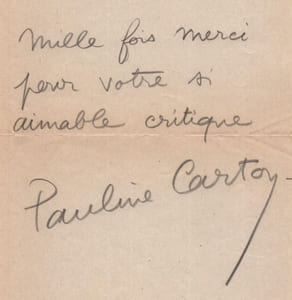 Mille fois merci
pour votre si
aimable critique
Pauline Carton